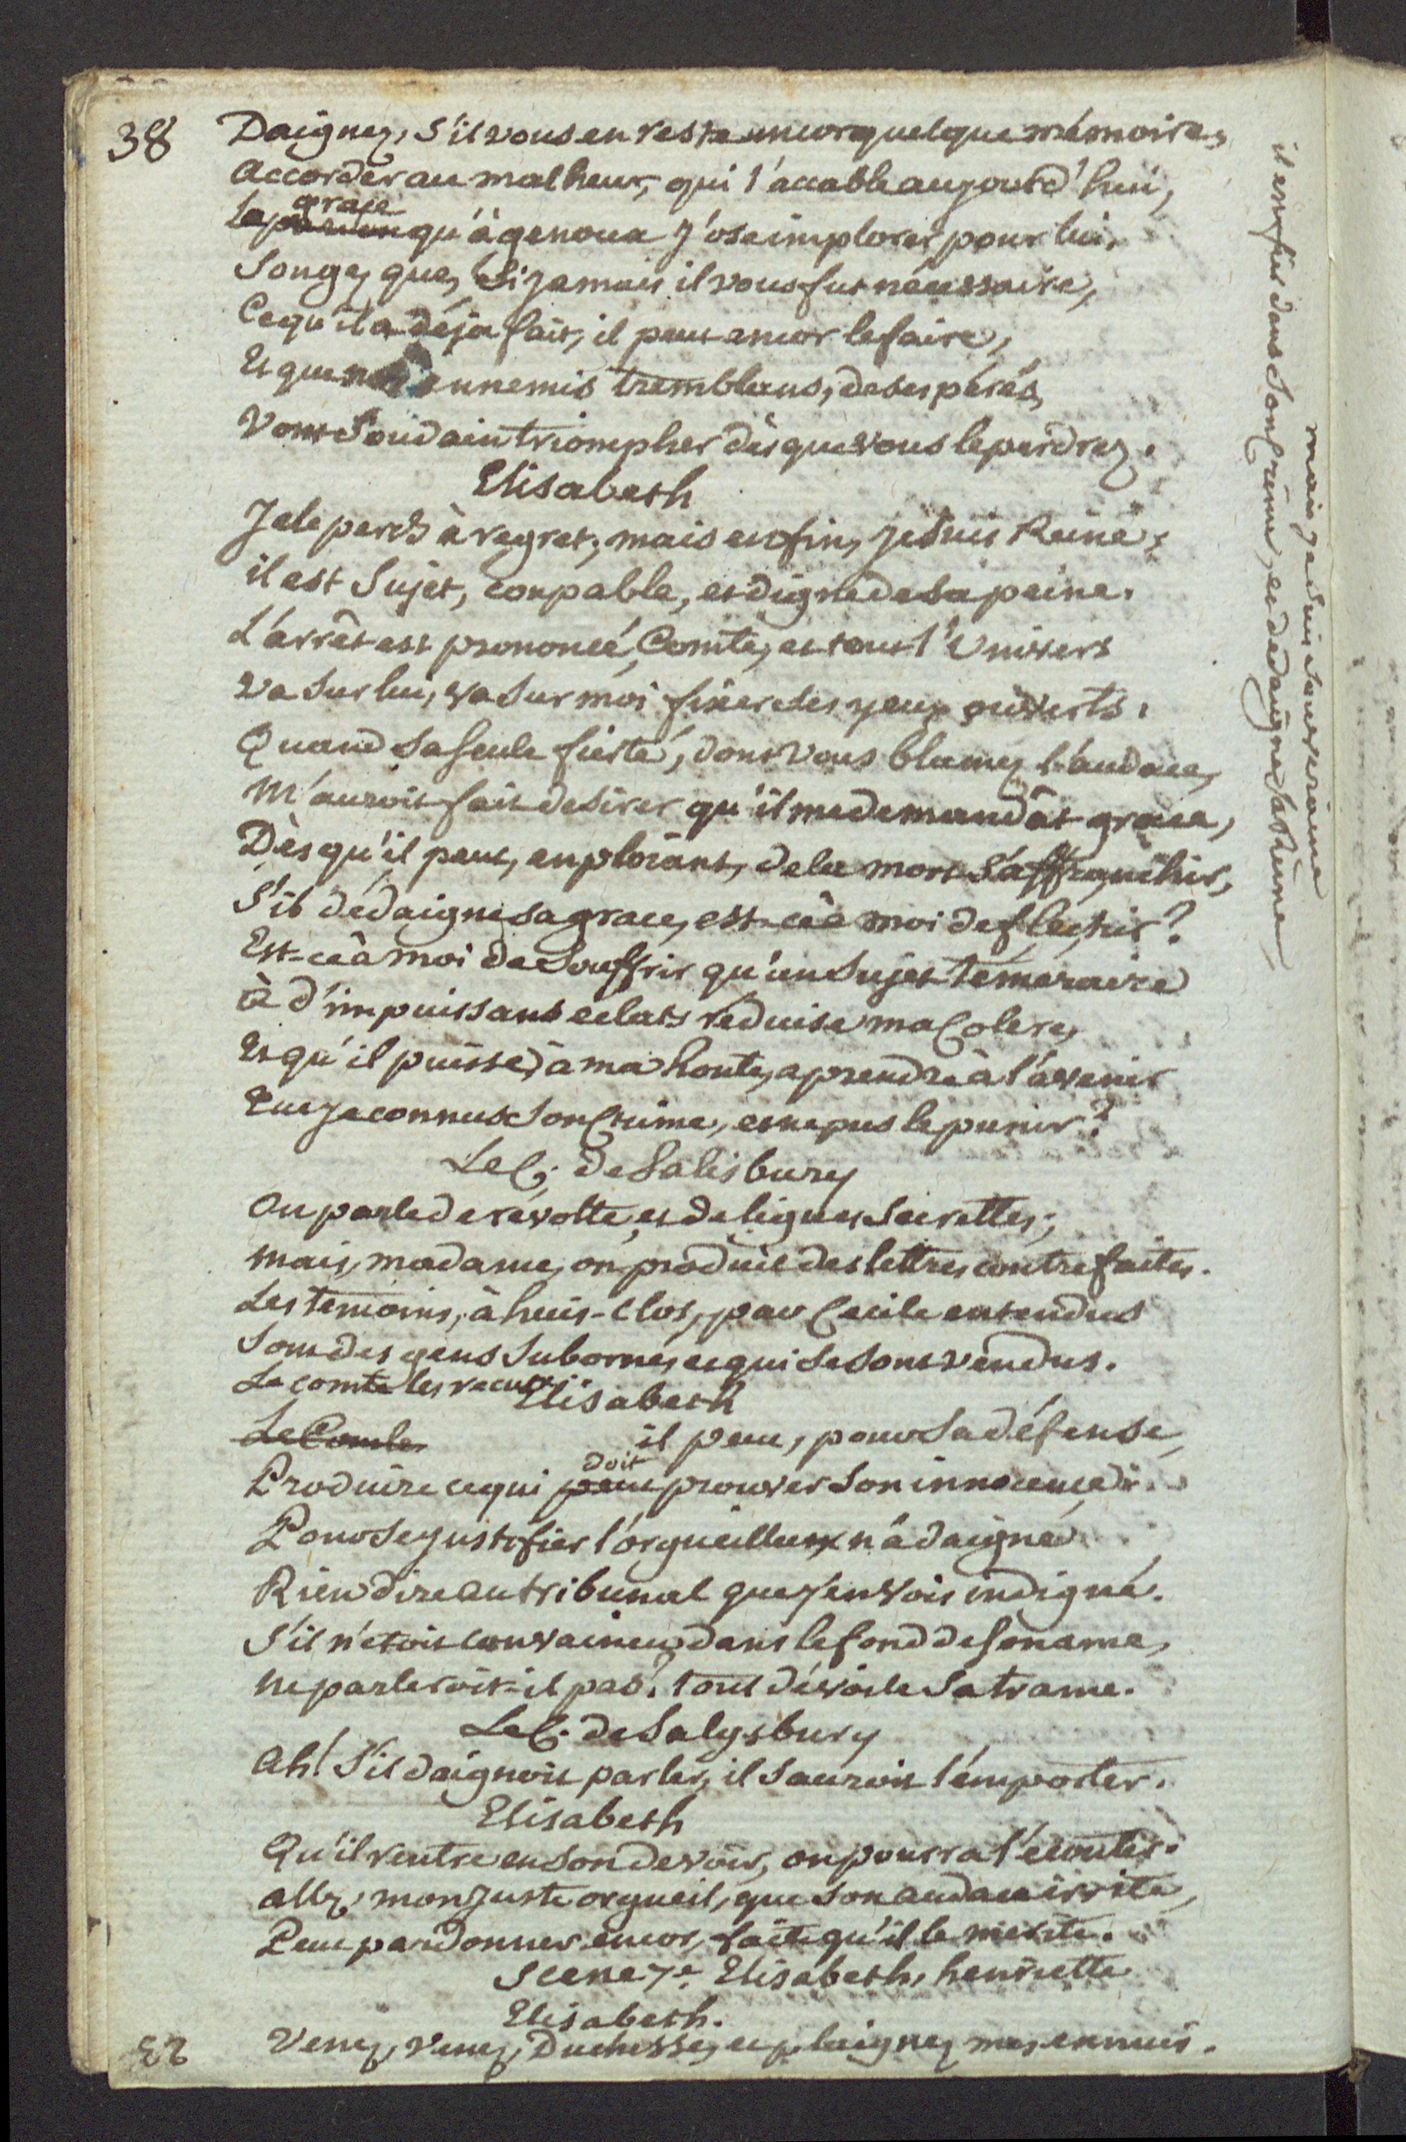 38
Daignez, s'il vous en reste encor quelque mémoire,
accorder au malheur, qui l'accable aujourd'hui,
grace
La qu'à genoux j'ose implorer pour lui.
Songez que, si jamais il vous fut nécessaire,
Ce qu'il a déja fait, il peut encor le faire,
Et que ennemis tremblans, desespérés,
Vont soudain triompher dès que vous le perdrez.
Elisabeth
Je le perds à regret; mais enfin, je suis Reine;
il est sujet, coupable, et digne de sa peine.
L'arrêt est prononcé, Comte, et tout l'Univers
va sur lui, va sur moi fixer des yeux ouverts.
Quand sa seule fierté, dont vous blamez l'audace,
M'auroit fait desirer qu'il me demandât grace,
Dès qu'il peut, en plorant, de la mort s'affranchir,
S'il dédaigne sa grace, est-ce à moi de flechir?
Est-ce à moi de souffrir qu'un sujet temeraire
à d'impuissans eclats réduise ma Colere,
Et qu'il puisse, à ma honte, aprendre à l'avenir
Que je connus son Crime, et ne pus le punir?
Le C. de Salisbury
On parle de révolte, et de ligues secrettes;
mais, madame, on produit des lettres contrefaites.
Les temoins, à huis-clos, par Cecile entendus
Sont des gens subornés, et qui se sont vendus.
Le comte les recuse.
Elisabeth
Le Comte
il peut, pour sa défense,
doit
Produire ce qui peut prouver son innocence.
Pour se justifier l'orgueilleux n'a daigné
Rien dire au tribunal que j'en vois indigné.
S'il n'etoit convaincu, dans le fond de son ame,
Ne parleroit-il pas? tout dévoile sa trame.
Le C. de Salysbury
Ah! s'il daignoit parler, il sauroit l'emporter.
Elisabeth
Qu'il rentre en son devoir, on pourra l'écouter.
allez, mon juste orgueil, que son audace irrite,
Peut pardonner encor, faite qu'il le merite.
Scene 7e Elisabeth, henriette
Elisabeth.
Venez, venez, Duchesse, et plaignez mes ennuis.
mais je suis souveraine
il est fier dans son crime, et dedaigne sa Reine,